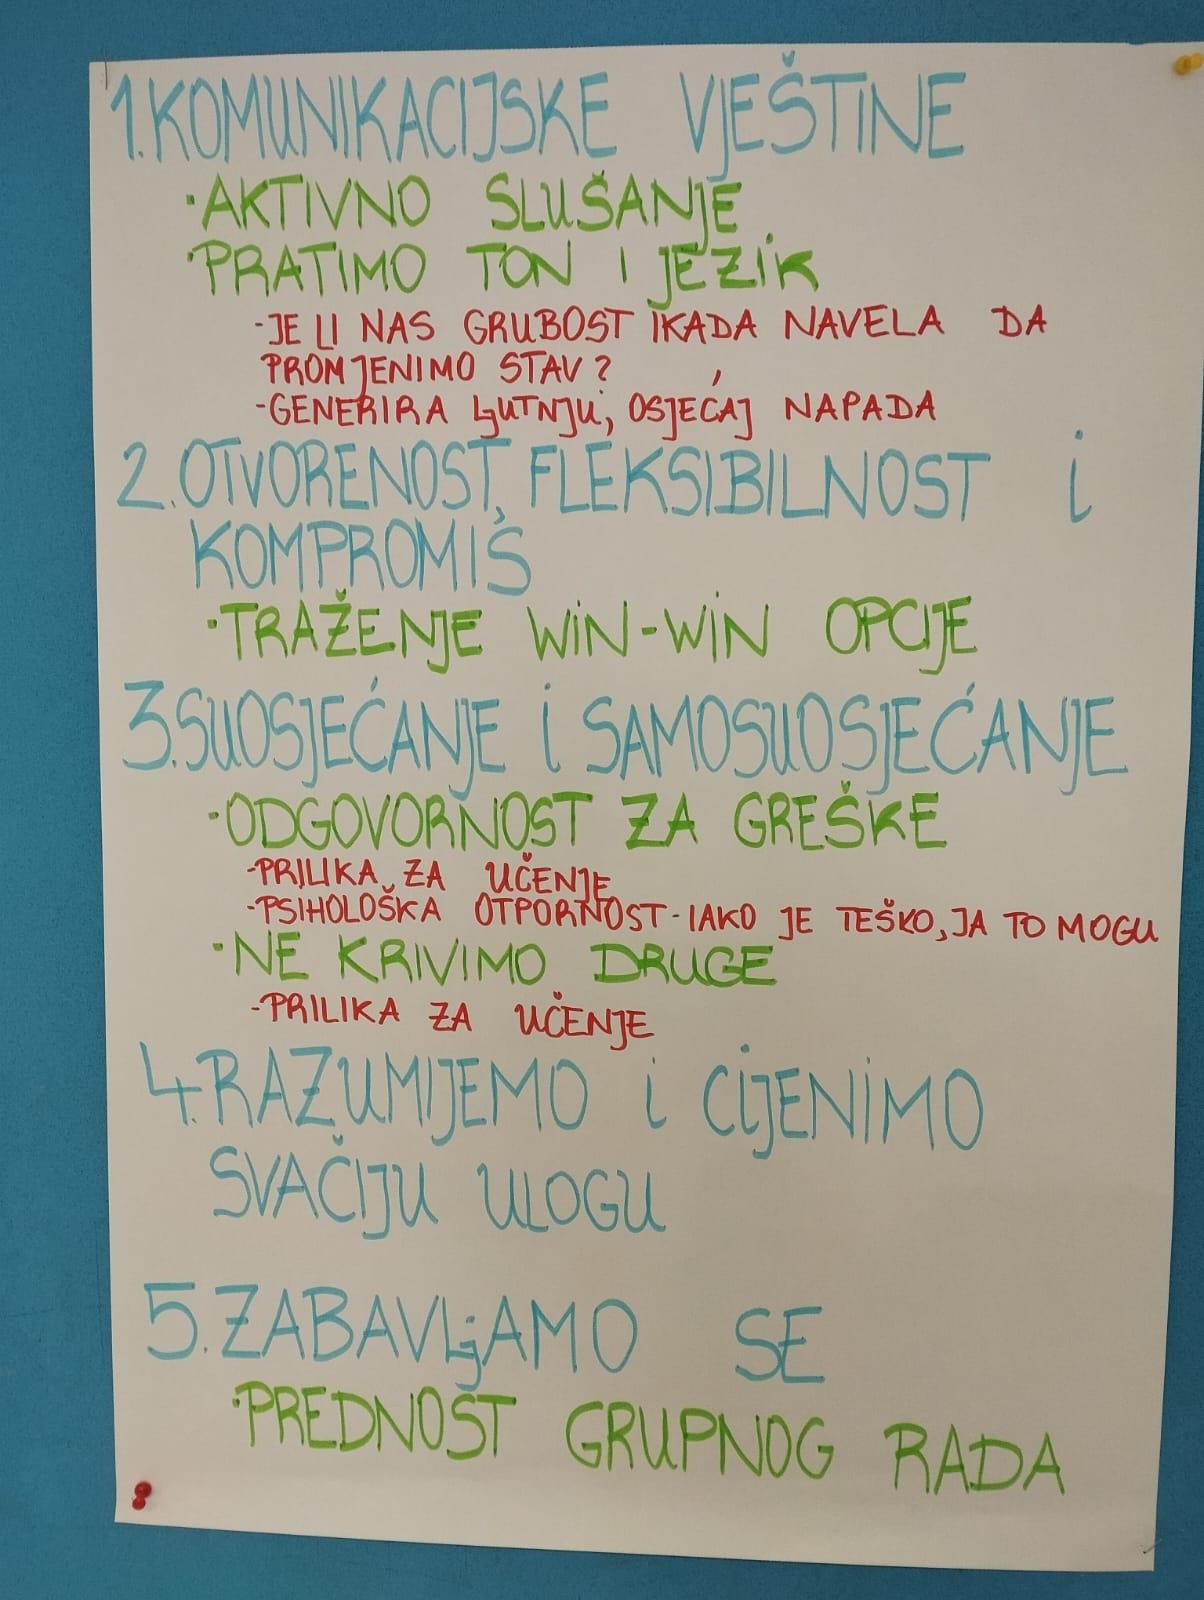 1. KOMUNIKACIJSKE VJEŠTINE
· AKTIVNO SLUŠANJE
· PRATIMO TON I JEZIK
- JE LI NAS GRUBOST IKADA NAVELA DA
PROMJENIMO STAV?
- GENERIRA LJUTNJU, OSJEĆAJ NAPADA
2. OTVORENOST, FLEKSIBILNOST I
KOMPROMIS
· TRAŽENJE WIN-WIN OPCIJE
3. SUOSJEĆANJE I SAMOSUOSJEĆANJE
· ODGOVORNOST ZA GREŠKE
- PRILIKA ZA UČENJE
- PSIHOLOŠKA OTPORNOST - IAKO JE TEŠKO, JA TO MOGU
· NE KRIVIMO DRUGE
- PRILIKA ZA UČENJE
4. RAZUMIJEMO I CIJENIMO
SVAČIJU ULOGU
5. ZABAVLJAMO SE
· PREDNOST GRUPNOG RADA